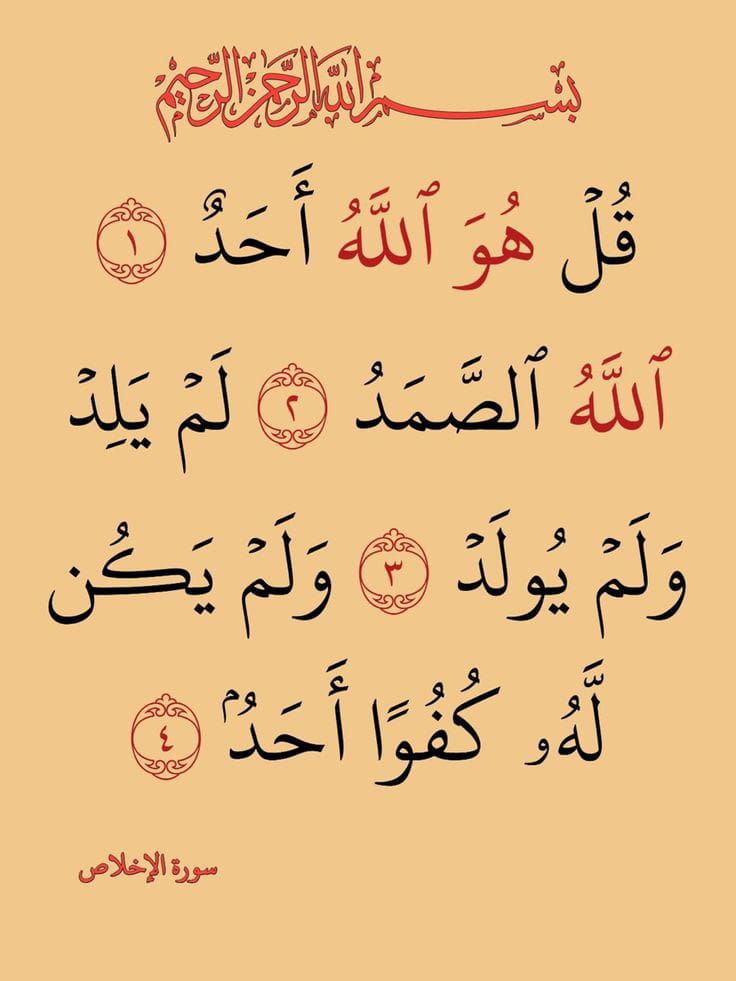 بسم الله الرحمن الرحيم
قُلۡ هُوَ ٱللَّهُ أَحَدٌ ١
ٱللَّهُ ٱلصَّمَدُ ٢ لَمۡ يَلِدۡ
وَلَمۡ يُولَدۡ ٣ وَلَمۡ يَكُن
لَّهُۥ كُفُوًا أَحَدُۢ ٤
سورة الإخلاص